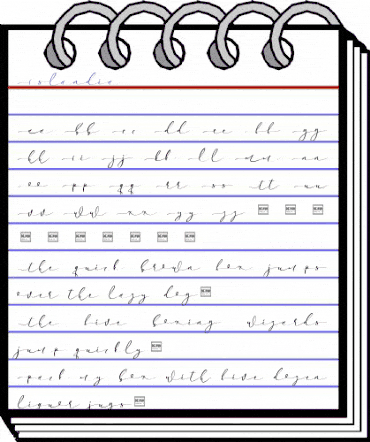 islandia
aa bb cc dd ee ff gg
hh ii jj kk ll mm nn
oo pp qq rr ss tt uu
vv ww xx yy zz
the quick brown fox jumps
over the lazy dog
the five boxing wizards
jump quickly
pack my box with five dozen
liquor jugs